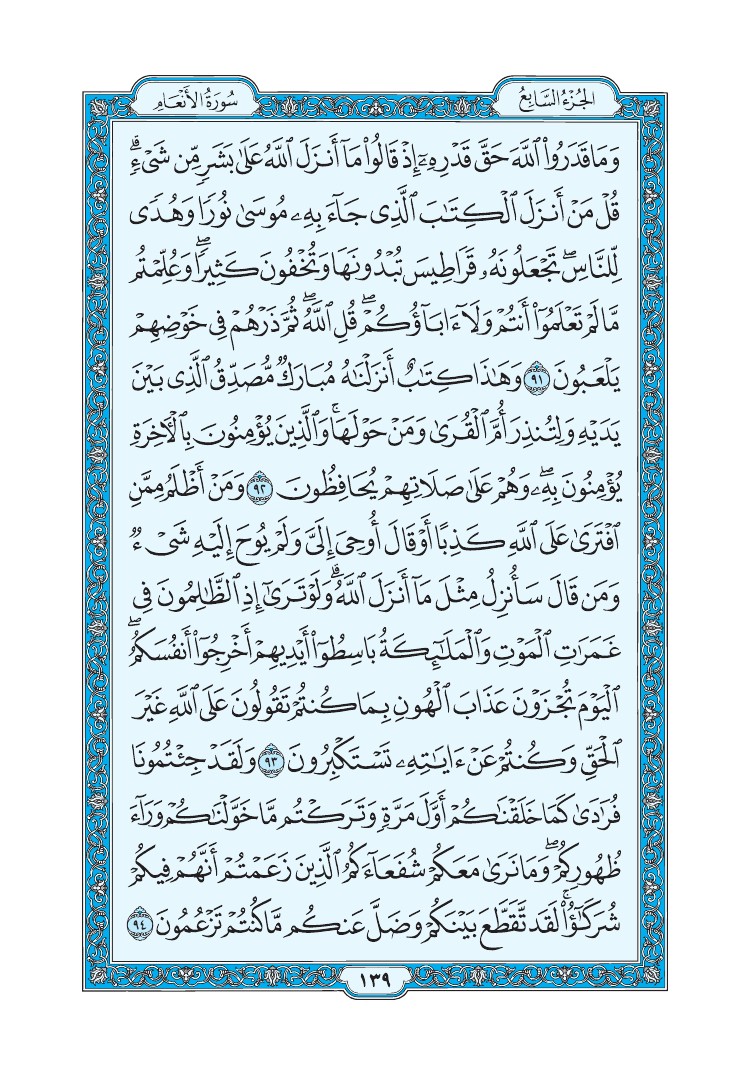 الجُزْءُ السَّابِعُ
سُورَةُ الأَنْعَامِ
وَمَا قَدَرُوا۟ ٱللَّهَ حَقَّ قَدْرِهِۦٓ إِذْ قَالُوا۟ مَآ أَنزَلَ ٱللَّهُ عَلَىٰ بَشَرٍۢ مِّن شَىْءٍۢ ۗ
قُلْ مَنْ أَنزَلَ ٱلْكِتَـٰبَ ٱلَّذِى جَآءَ بِهِۦ مُوسَىٰ نُورًۭا وَهُدًۭى
لِّلنَّاسِ ۖ تَجْعَلُونَهُۥ قَرَاطِيسَ تُبْدُونَهَا وَتُخْفُونَ كَثِيرًۭا ۖ وَعُلِّمْتُم
مَّا لَمْ تَعْلَمُوٓا۟ أَنتُمْ وَلَآ ءَابَآؤُكُمْ ۖ قُلِ ٱللَّهُ ۖ ثُمَّ ذَرْهُمْ فِى خَوْضِهِمْ
يَلْعَبُونَ ٩١ وَهَـٰذَا كِتَـٰبٌ أَنزَلْنَـٰهُ مُبَارَكٌۭ مُّصَدِّقُ ٱلَّذِى بَيْنَ
يَدَيْهِ وَلِتُنذِرَ أُمَّ ٱلْقُرَىٰ وَمَنْ حَوْلَهَا ۚ وَٱلَّذِينَ يُؤْمِنُونَ بِٱلْـَٔاخِرَةِ
يُؤْمِنُونَ بِهِۦ ۖ وَهُمْ عَلَىٰ صَلَاتِهِمْ يُحَافِظُونَ ٩٢ وَمَنْ أَظْلَمُ مِمَّنِ
ٱفْتَرَىٰ عَلَى ٱللَّهِ كَذِبًا أَوْ قَالَ أُوحِىَ إِلَىَّ وَلَمْ يُوحَ إِلَيْهِ شَىْءٌۭ
وَمَن قَالَ سَأُنزِلُ مِثْلَ مَآ أَنزَلَ ٱللَّهُ ۗ وَلَوْ تَرَىٰٓ إِذِ ٱلظَّـٰلِمُونَ فِى
غَمَرَٰتِ ٱلْمَوْتِ وَٱلْمَلَـٰٓئِكَةُ بَاسِطُوٓا۟ أَيْدِيهِمْ أَخْرِجُوٓا۟ أَنفُسَكُمُ ۖ
ٱلْيَوْمَ تُجْزَوْنَ عَذَابَ ٱلْهُونِ بِمَا كُنتُمْ تَقُولُونَ عَلَى ٱللَّهِ غَيْرَ
ٱلْحَقِّ وَكُنتُمْ عَنْ ءَايَـٰتِهِۦ تَسْتَكْبِرُونَ ٩٣ وَلَقَدْ جِئْتُمُونَا
فُرَٰدَىٰ كَمَا خَلَقْنَـٰكُمْ أَوَّلَ مَرَّةٍۢ وَتَرَكْتُم مَّا خَوَّلْنَـٰكُمْ وَرَآءَ
ظُهُورِكُمْ ۖ وَمَا نَرَىٰ مَعَكُمْ شُفَعَآءَكُمُ ٱلَّذِينَ زَعَمْتُمْ أَنَّهُمْ فِيكُمْ
شُرَكَـٰٓؤُا۟ ۚ لَقَد تَّقَطَّعَ بَيْنَكُمْ وَضَلَّ عَنكُم مَّا كُنتُمْ تَزْعُمُونَ ٩٤
١٣٩